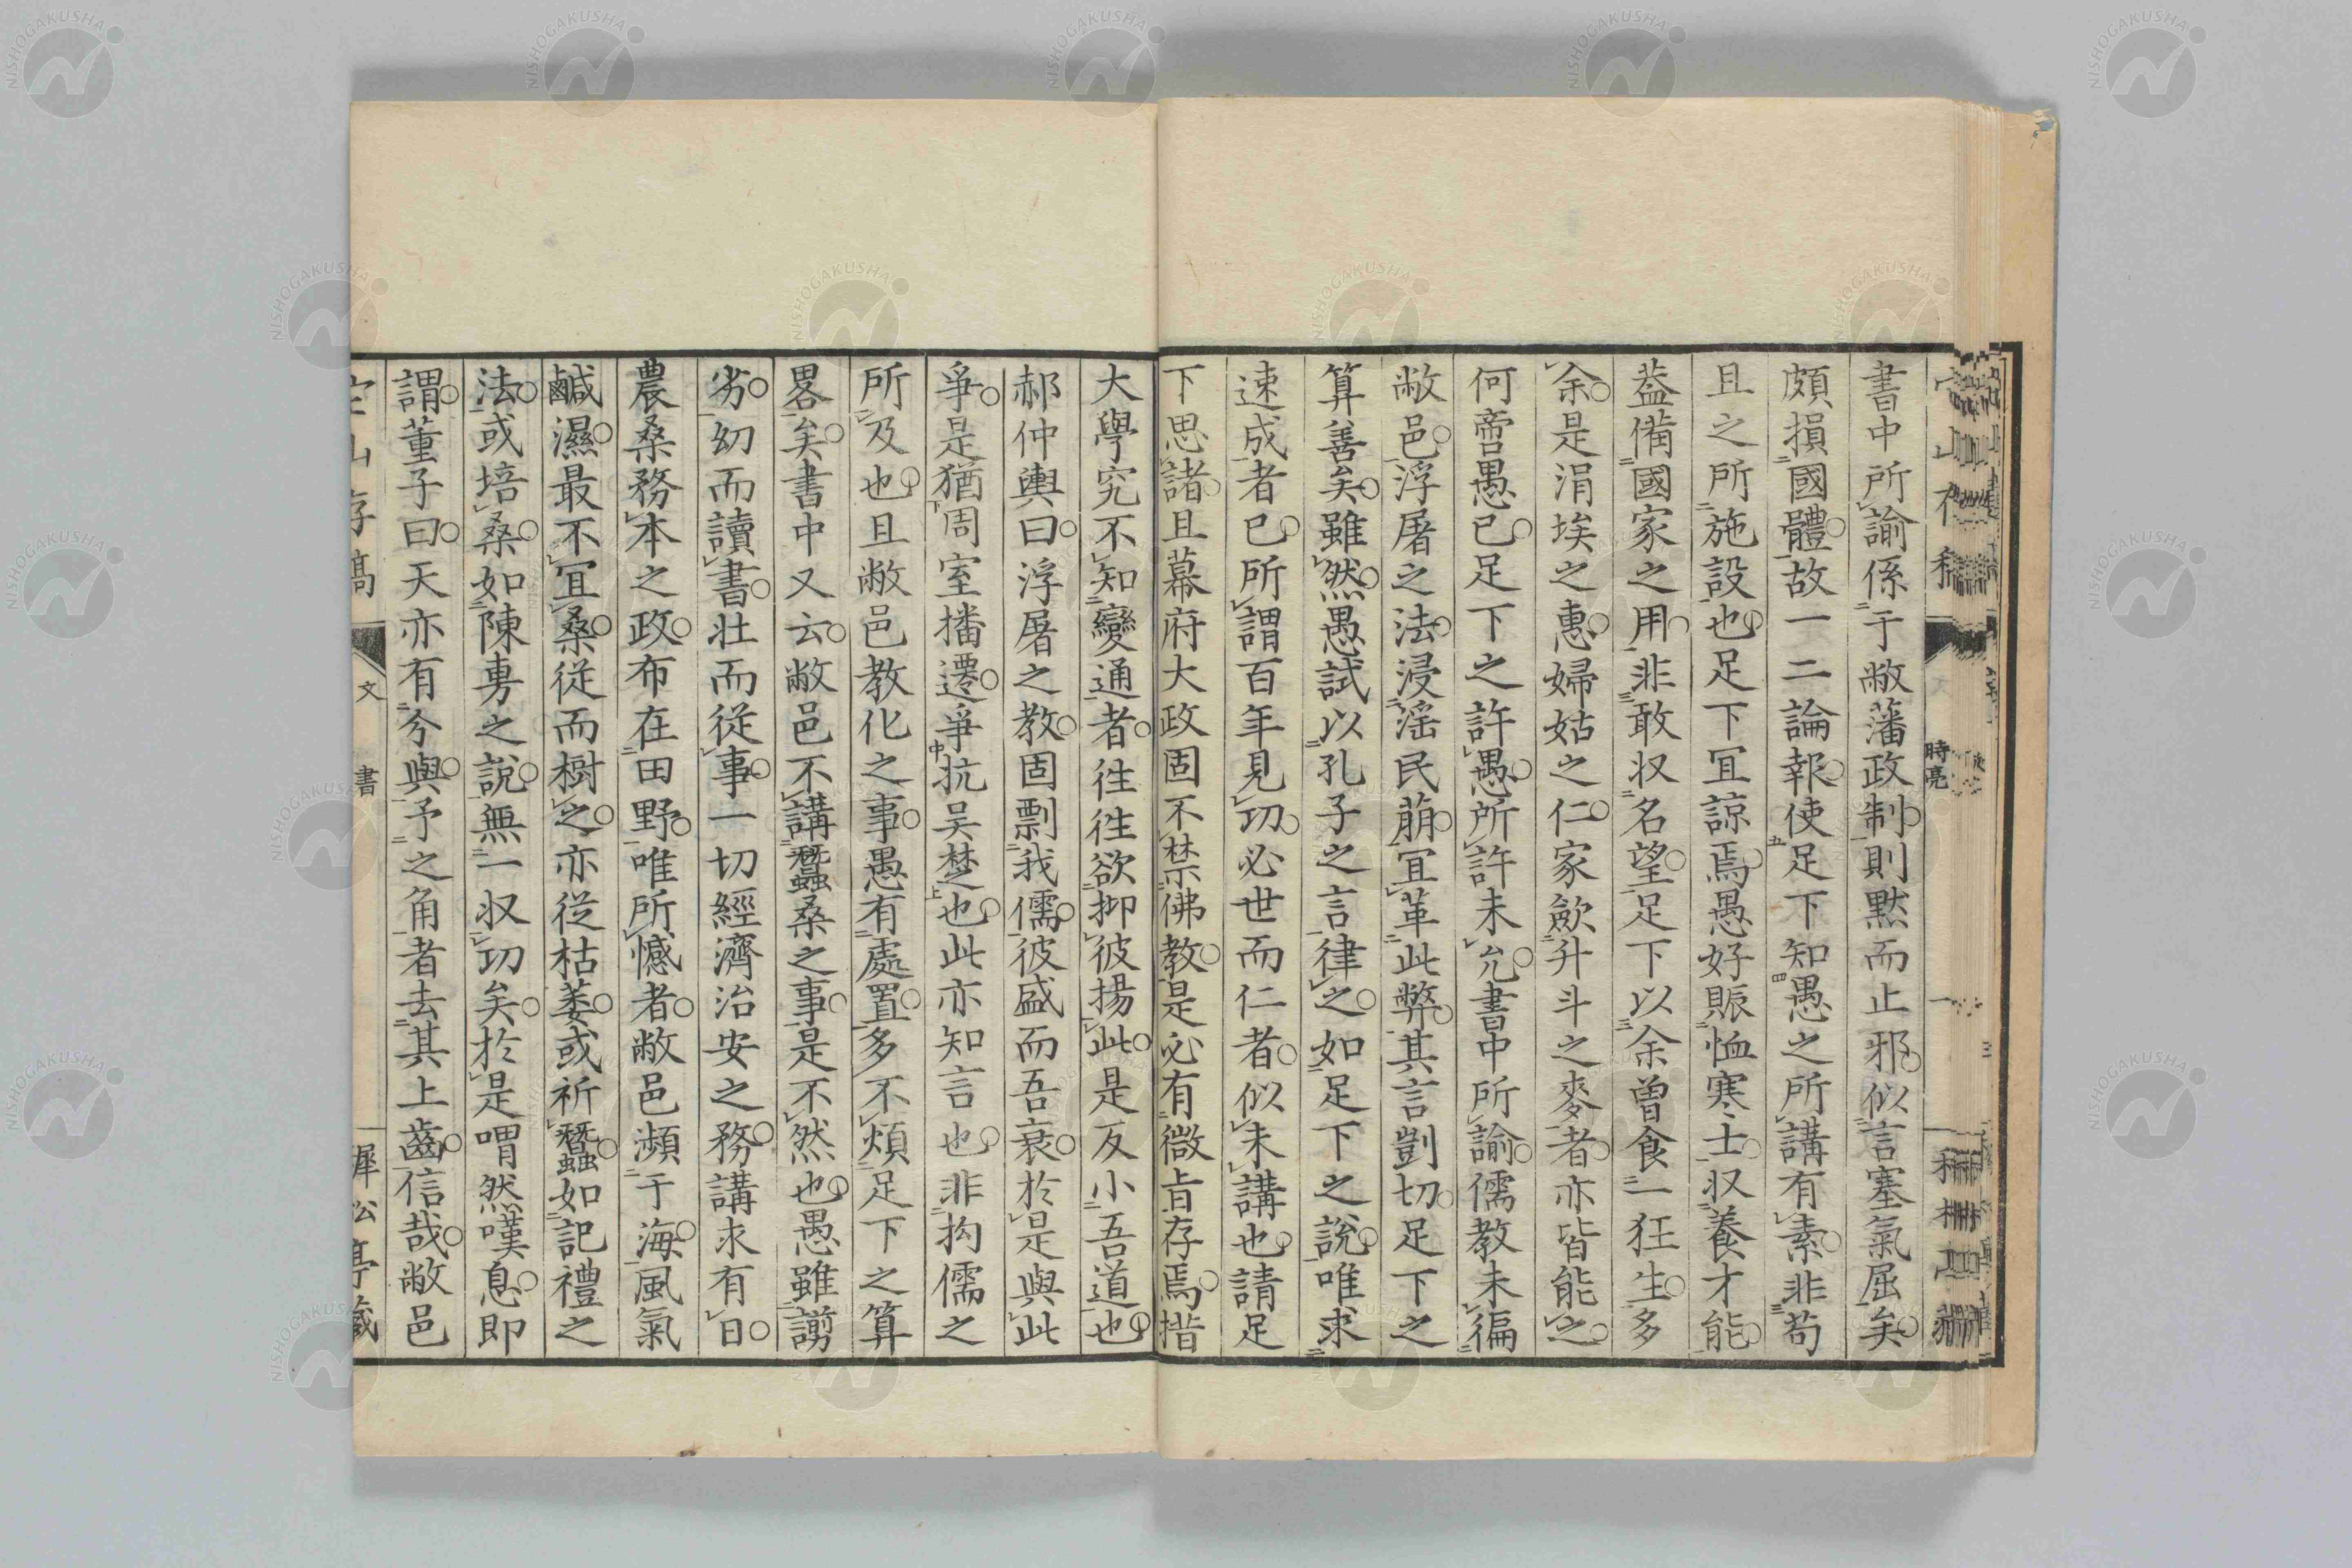 書中所諭係于敝藩政制則默而止邪似言塞氣屈矣
頗損國體故一二論報使足下知愚之所講有素非苟
且之所施設也足下冝諒焉愚好賑恤寒士収養才能
葢備國家之用非敢収名望足下以余曽食一狂生多
余是涓埃之惠婦姑之仁家斂升斗之麥者亦皆能之
何啻愚已足下之許愚所許未允書中所諭儒教未徧
敝邑浮屠之法浸滛民萠冝革此弊其言剴切足下之
算善矣雖然愚試以孔子之言律之如足下之說唯求
速成者已所謂百年見功必世而仁者似未講也請足
下思諸且幕府大政固不禁佛教是必有微旨存焉措
大學究不知變通者徃徃欲抑彼揚此是反小吾道也
郝仲輿曰浮屠之教固剽我儒彼盛而吾衰於是與此
爭是猶周室播遷爭抗吴楚也此亦知言也非拘儒之
所及也且敝邑教化之事愚有處置多不煩足下之算
畧矣書中又云敝邑不講蠶桑之事是不然也愚雖謭
劣幼而讀書壯而從事一切經濟治安之務講求有日
農桑務本之政布在田野唯所憾者敝邑瀕于海風氣
鹹濕最不冝桑從而樹之亦從枯萎或祈蠶如記禮之
法或培桑如陳旉之說無一収功矣於是喟然嘆息即
謂董子曰天亦有兮與予之角者去其上齒信哉敝邑
文
書
時亮